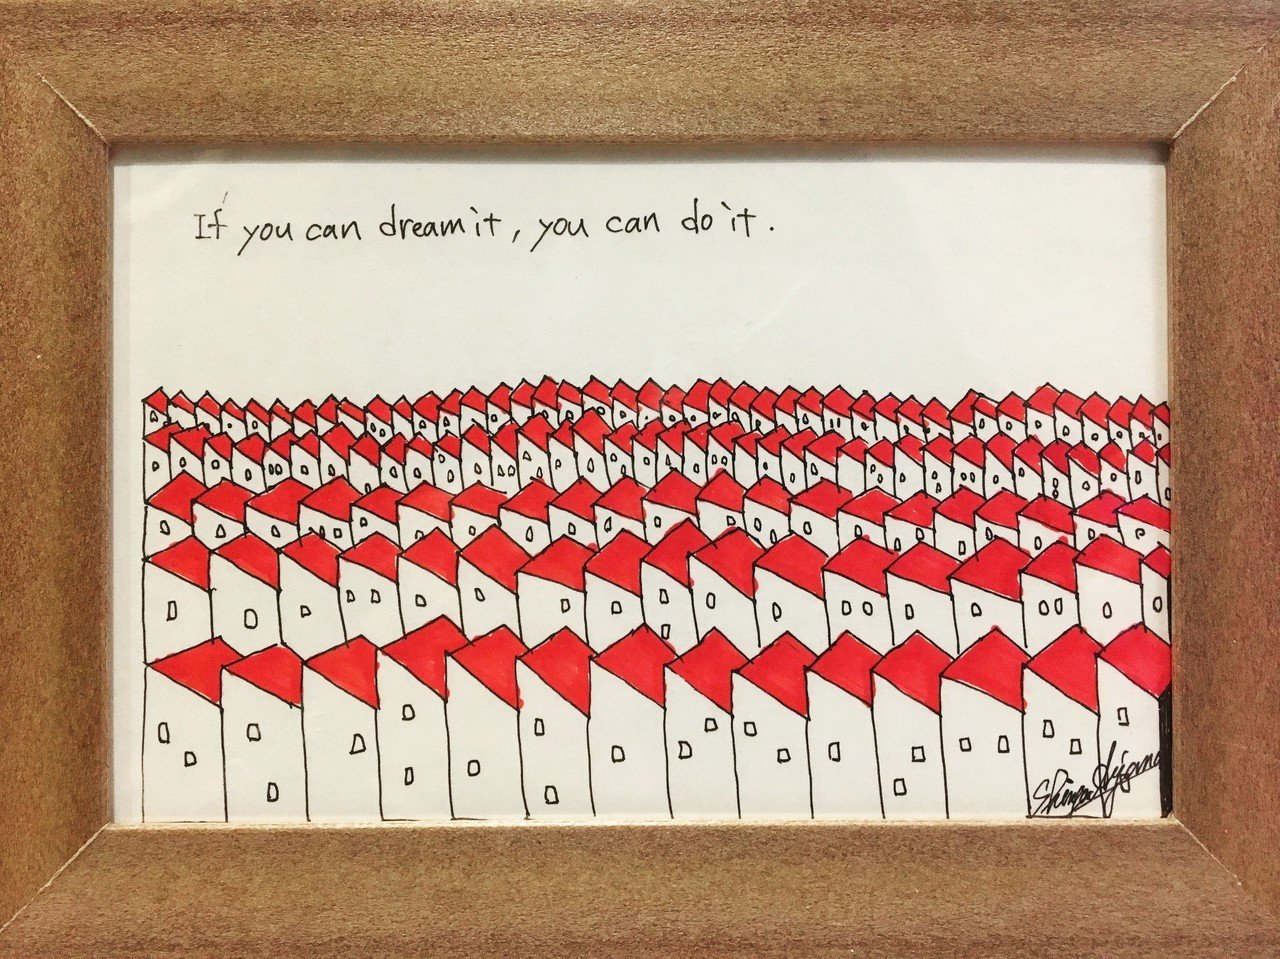 If you can dream it, you can do it.